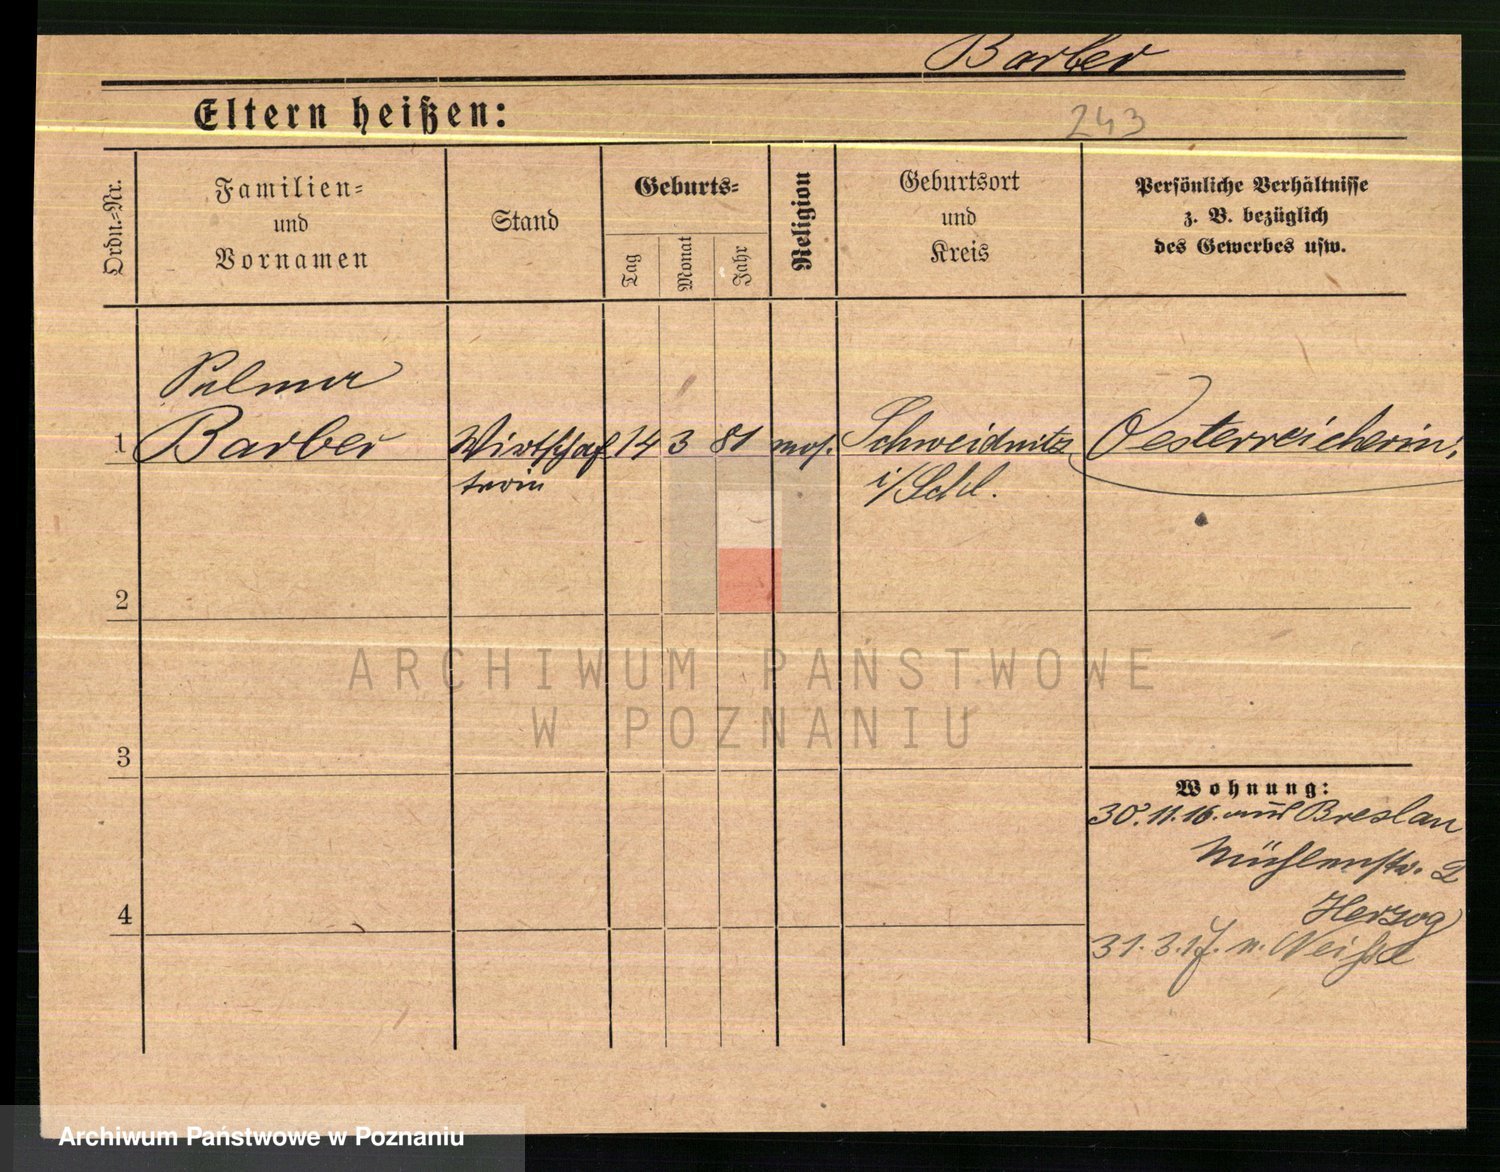 Barber
Eltern heißen:
243
Ordn.-Nr.
Familien-
und
Vornamen
Stand
Geburts-
Tag
Monat
Jahr
Religion
Geburtsort
und
Kreis
Persönliche Verhältnisse
z. B. bezüglich
des Gewerbes usw.
Selma
1 Barber Wirtschaf 14 3 81 mos. Schweidnitz Oesterreicherin
terin i/Schl.
2
ARCHIWUM PAŃSTWOWE
W POZNANIU
3
Wohnung:
30.11.16. aus Breslau
Mühlenstr. 2
Herzog
4
31.3.17. n. Neisse
Archiwum Państwowe w Poznaniu